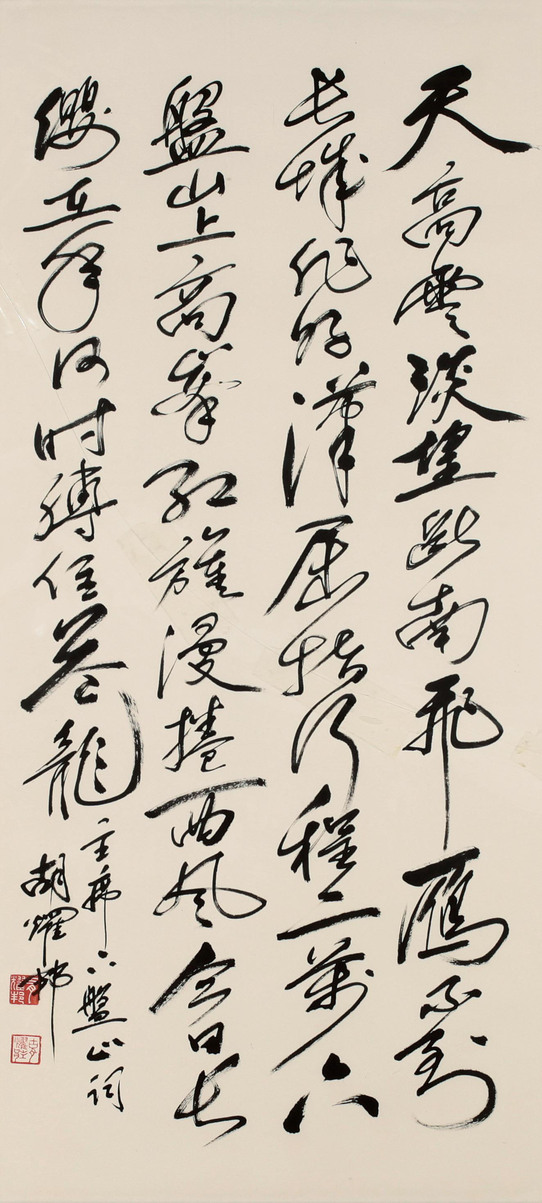 天高雲淡望斷南飛雁不到
長城非好漢屈指行程二萬六
盤山上高峯紅旗漫捲西風今日長
纓在手何時縛住蒼龍
主席六盤山詞
胡耀邦